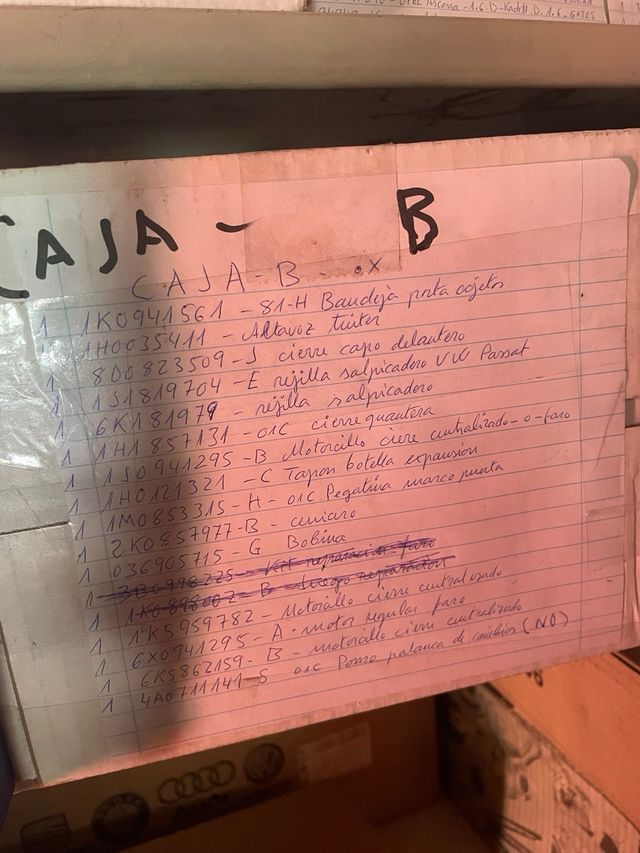 OPEL Ascona - 1.6 D - Kadett D. 1.6 - GATES
CAJA - B
CAJA - B - . X
1 1K0941561 - 81-H Bandeja porta ojetos
1 1H0035411 - Altavoz tuiter
1 8D0823509 - J cierre capo delantero
1 1J1819704 - E rejilla salpicadero VW Passat
1 6K181979 - rejilla salpicadero
1 1H1857131 - 01C cierre guantera
1 1J0941295 - B Motorcillo cierre centralizado - o - faro
1 1H0121321 - C Tapon botella expansión
1 1M0853315 - H - 01C Pegatina marco puerta
1 2K0857977 - B - cenicero
1 036905715 - G Bobina
1 3B0998225 - Kit reparacion faro
1 1K0898002 - B - Juego reparacion
1 1K5959782 - Motorcillo cierre centralizado
1 6X0941295 - A - motor regular faro
1 6K5862159 - B - motorcillo cierre centralizado
1 4A0711141 - S 01C Pomo palanca de cambios (NO)
Audi